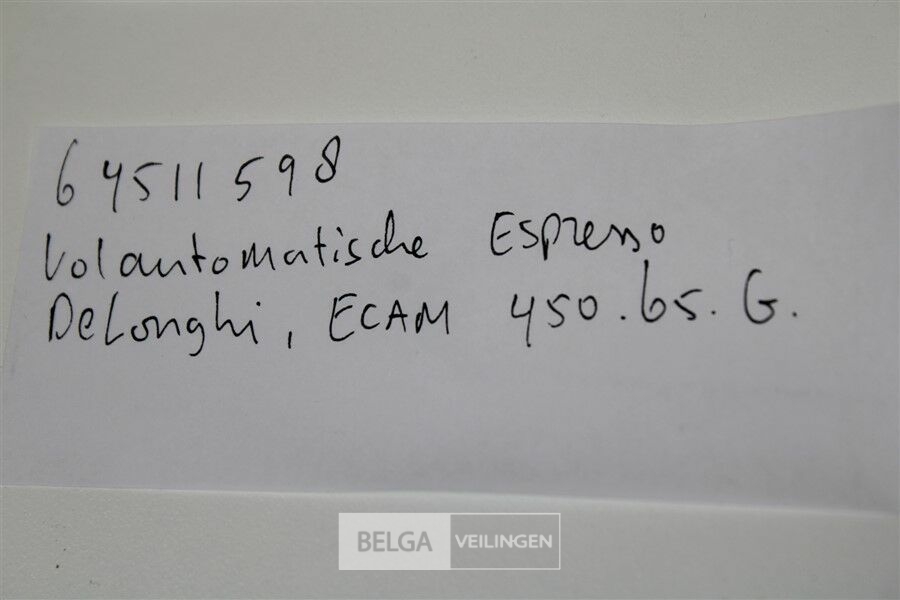 64511598
Volautomatische Espresso
DeLonghi, ECAM 450.65.G.
BELGA VEILINGEN